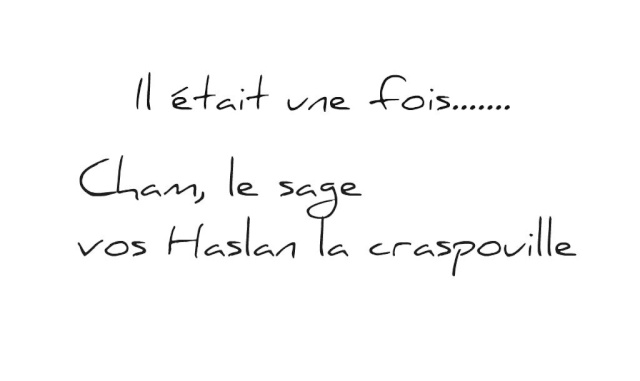 Il était une fois.......
Cham, le sage
vos Haslan la craspouille